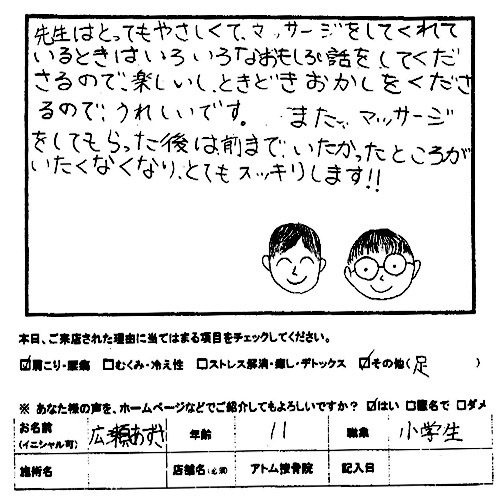 先生はとってもやさしくて、マッサージをしてくれて
いるときはいろいろなおもしろい話をしてくだ
さるので、楽しいし、ときどきおかしをくださ
るので、うれしいです。 また、マッサージ
をしてもらった後は、前まで、いたかったところが
いたくなくなり、とてもスッキリします!!
本日、ご来店された理由に当てはまる項目をチェックしてください。
☑肩こり・腰痛 □むくみ・冷え性 □ストレス解消・癒し・デトックス ☑その他(足 )
※ あなた様の声を、ホームページなどでご紹介してもよろしいですか? ☑はい □匿名で □ダメ
お名前 (イニシャル可) 広瀬あずさ 年齢 11 職業 小学生
施術名 店舗名 アトム接骨院 記入日